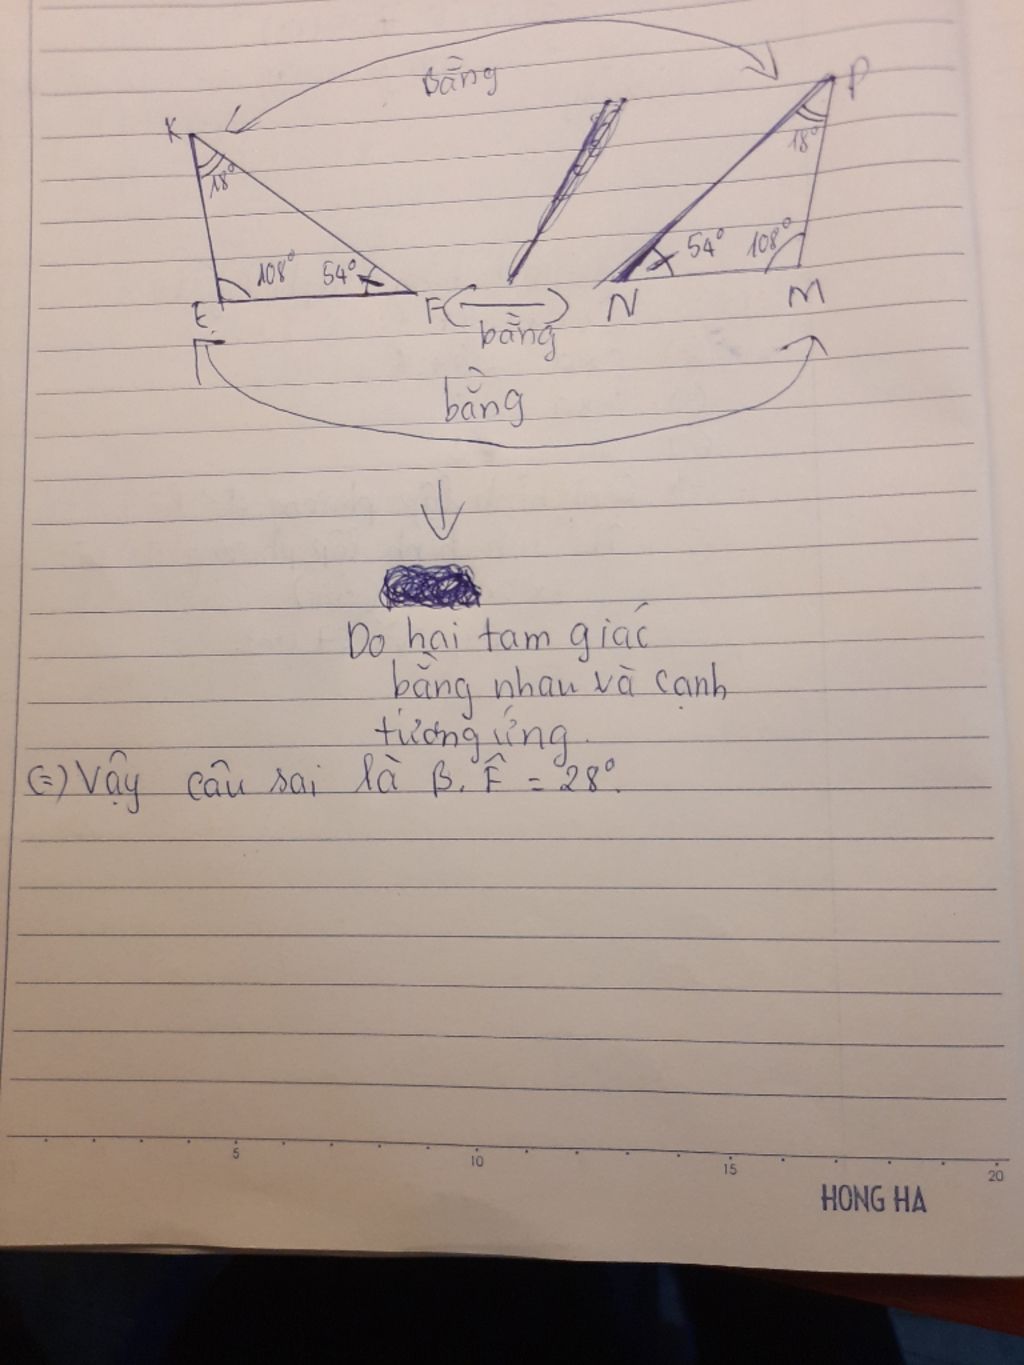 Bằng
K
P
18°
18°
108°
54°
54°
108°
E
F
N
M
bằng
bằng
Do hai tam giác
bằng nhau và cạnh
tương ứng.
(=) Vậy câu sai là B. F̂ = 28°.
5
10
15
20
HONG HA